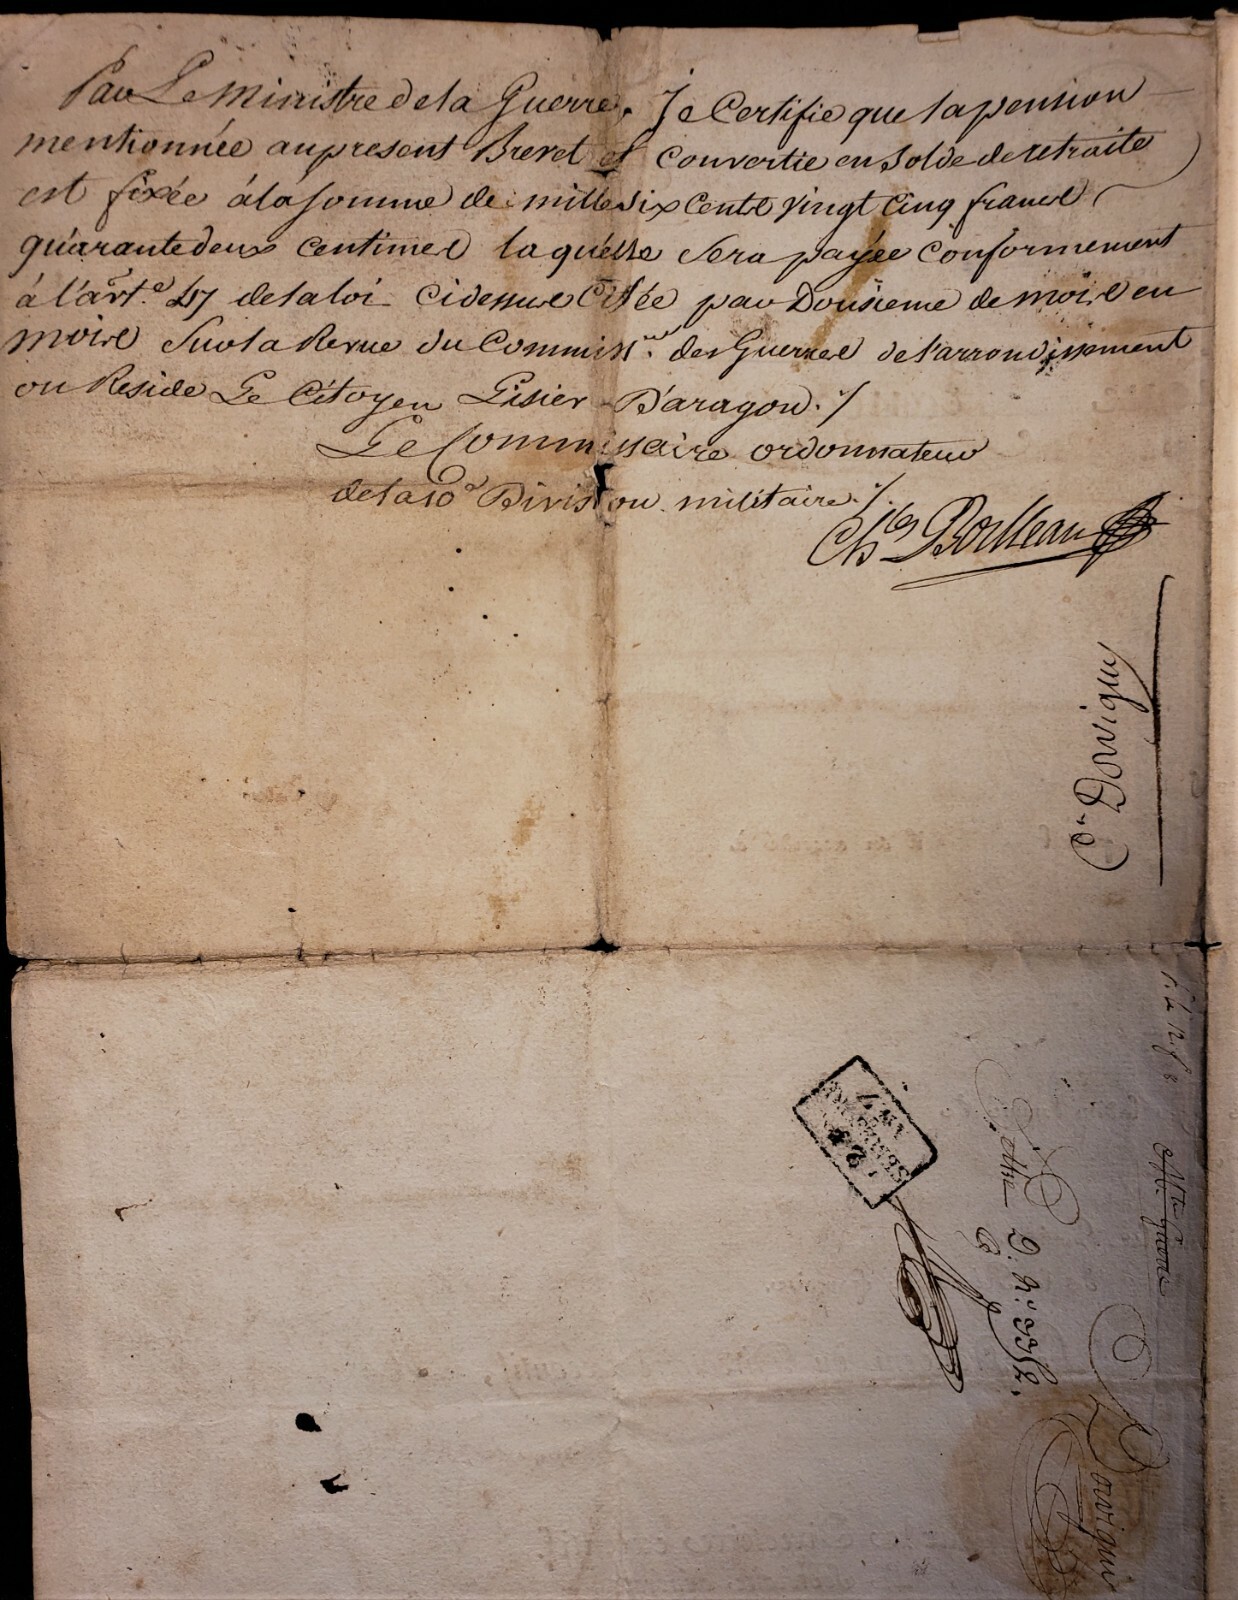 Par Le Ministre de la Guerre. Je Certifie que la pension
mentionnée au present Brevet et convertie en Solde de retraite
est fixée à la somme de mille six Cents vingt Cinq francs
quarante deux centimes laquelle sera payée conformement
à l'art.e 47 de la loi Cidessus Citée par Dousieme de mois en
mois sur la Revue du Commiss.re des Guerres de l'arrondissement
ou Reside Le Citoyen Lisier D'aragon ./
Le Commissaire ordonnateur
de la 10e Division militaire ./.
Ch.les Boilleau
C.n Dorvigny
D. N.o 3352.
Dorvigni